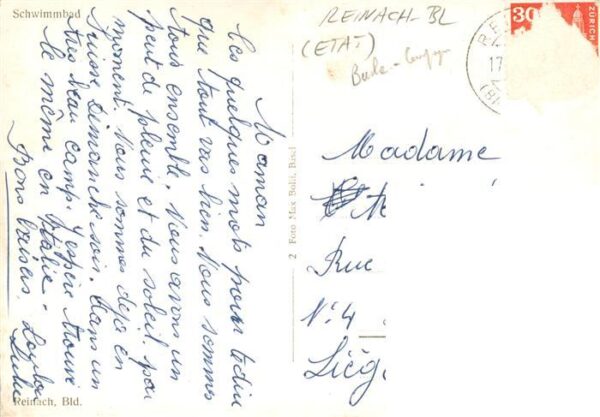 Schwimmbad
Maman
Ces quelques mots pour te dire
que tout vas bien. Nous sommes
tous ensemble. Nous avons un
peut de pleuie et du soleil par
moment. Nous sommes déjà en
Suisse Dimanche soir. Dans un
très beau camp. J'espère trouvé
le même en Italie -
Bons baisers.
Reinach, Bld.
2 Foto Max Bolli, Basel
REINACH-BL
(ETAT)
30
ZÜRICH
17
Madame
Rue
N° 4
Lièg